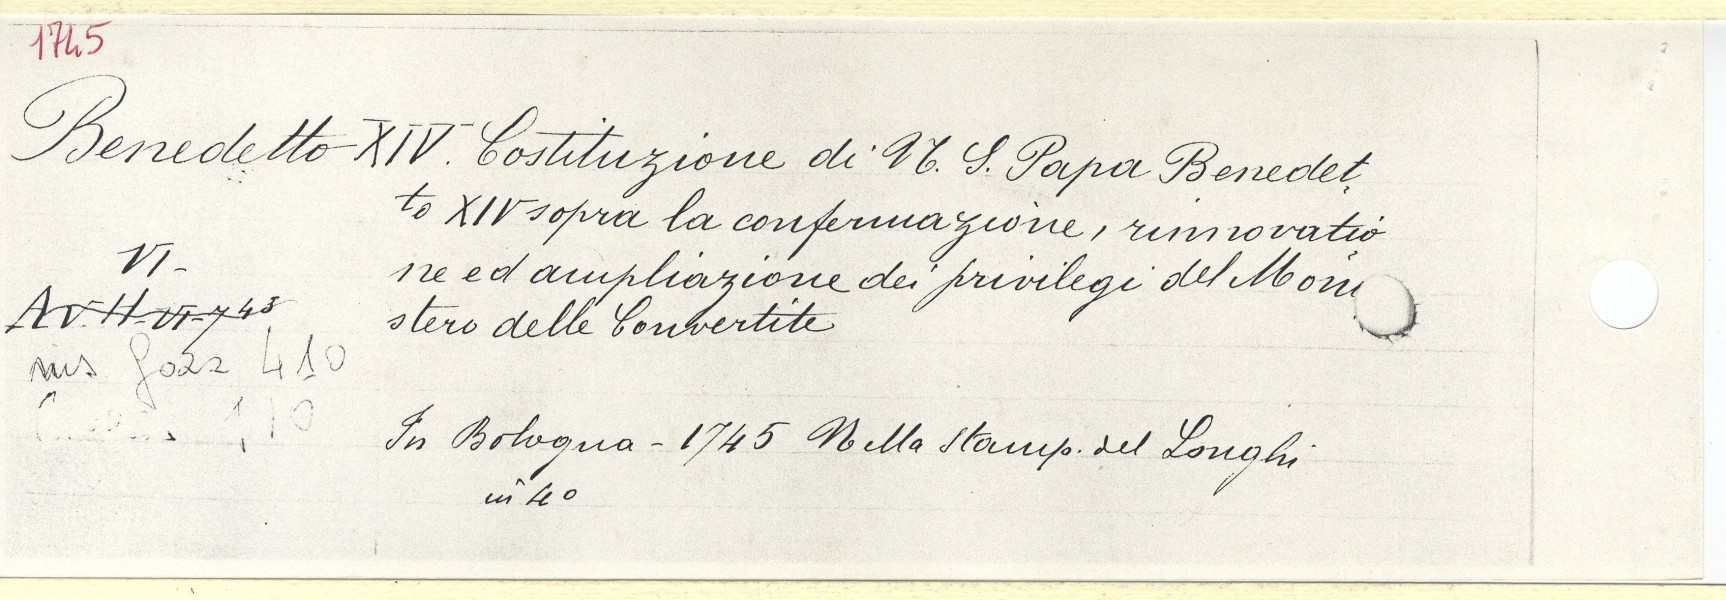 1745
Benedetto XIV. Costituzione di N. S. Papa Benedet
to XIV sopra la confermazione, rinnovatio
ne ed ampliazione dei privilegi del Moni
stero delle Convertite
VI-
A V. H VI-7 43
ms Gozz 410
In Bologna - 1745 Nella Stamp. del Longhi
in 4o